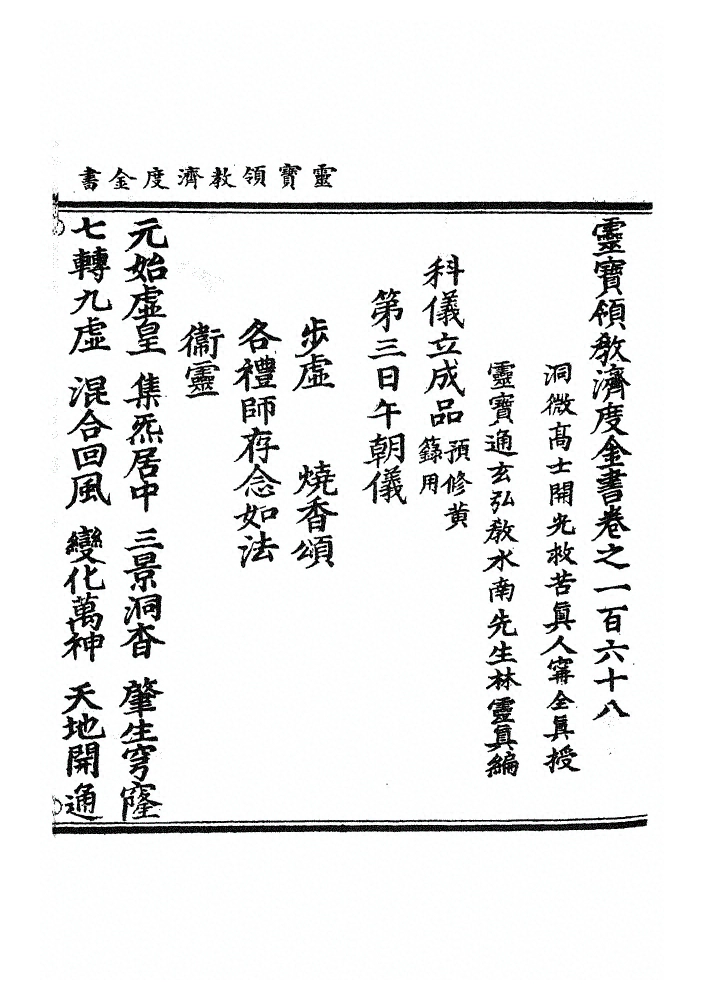 靈寶領教濟度金書
靈寶領敎濟度金書卷之一百六十八
洞微高士開光救苦眞人寗全眞授
靈寶通玄弘敎水南先生林靈眞編
科儀立成品預修黄籙用
第三日午朝儀
步虛　燒香頌
各禮師存念如法
衞靈
元始虛皇　集炁居中　三景洞杳　肇生穹窿
七轉九虛　混合回風　變化萬神　天地開通